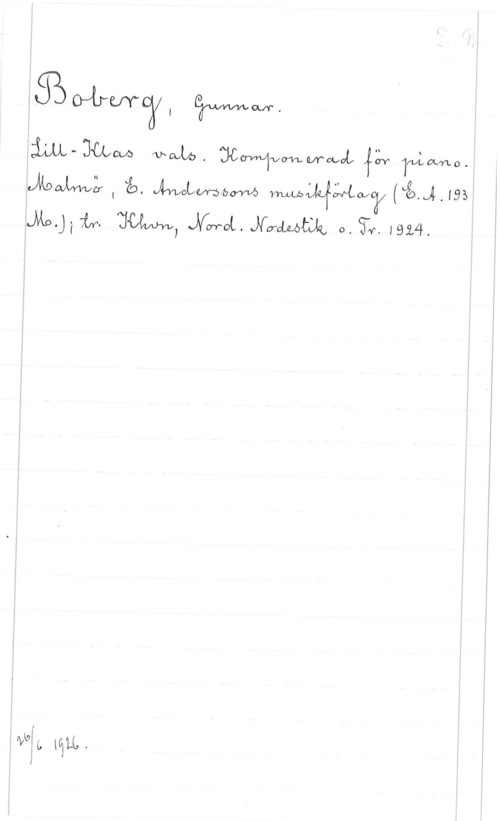 Boberg, Gunnar.
Lill-Klas vals. Komponerad för piano.
Malmö, E. Anderssons musikförlag (E.A. 193
Mo.); tr. Khvn, Nord. Nodestik o. Tr. 1924.
26/6 1926.